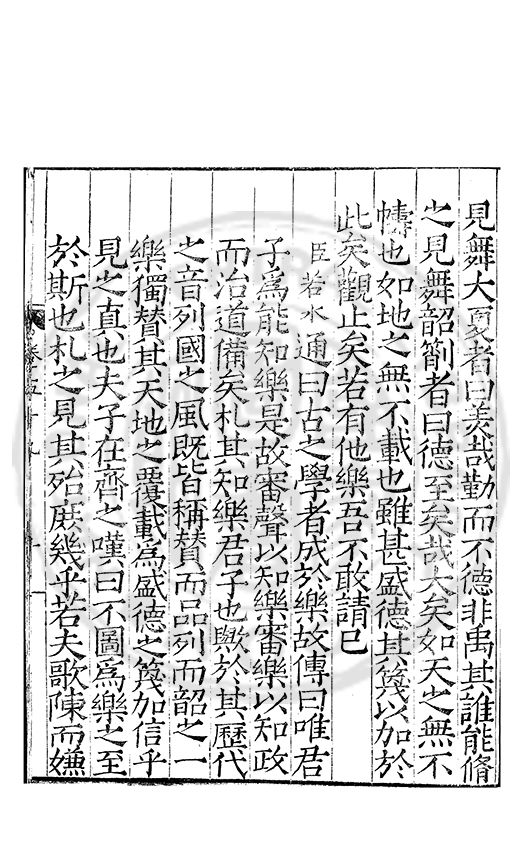 見舞大夏者曰美哉勤而不德非禹其誰能脩
之見舞韶箾者曰德至矣哉大矣如天之無不
幬也如地之無不載也雖甚盛德其篾以加於
此矣觀止矣若有他樂吾不敢請已
臣若水通曰古之學者成於樂故傳曰唯君
子爲能知樂是故審聲以知樂審樂以知政
而治道備矣札其知樂君子也歟於其歷代
之音列國之風既皆稱賛而品列而韶之一
樂獨賛其天地之覆載爲盛德之篾加信乎
見之真也夫子在齊之嘆曰不圖爲樂之至
於斯也札之見其殆庶幾乎若夫歌陳而嫌
卷五十九